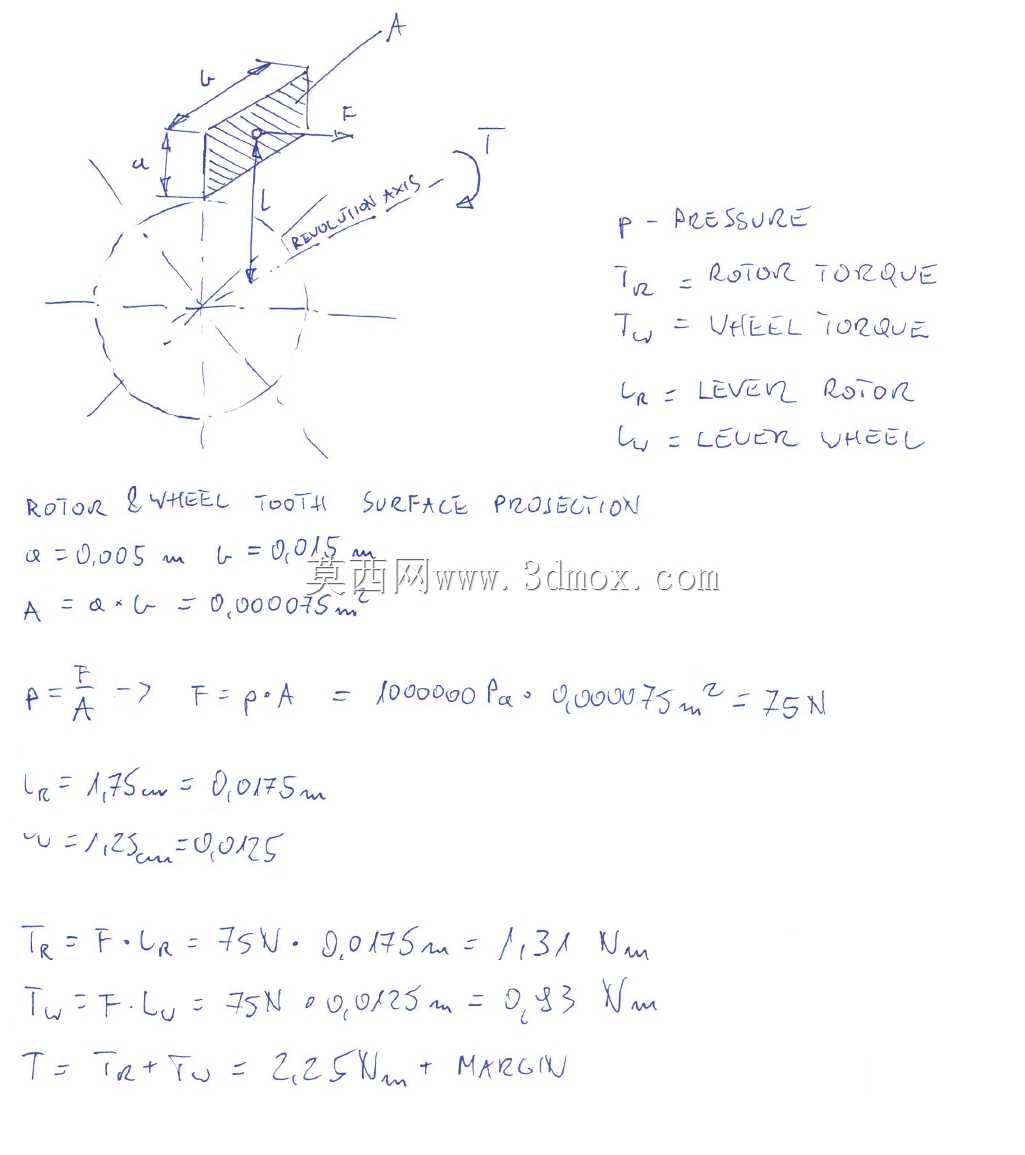 A
b
F
a
T
L
REVOLUTION AXIS
p - PRESSURE
T_R = ROTOR TORQUE
T_W = WHEEL TORQUE
L_R = LEVER ROTOR
L_W = LEVER WHEEL
ROTOR & WHEEL TOOTH SURFACE PROJECTION
a = 0,005 m b = 0,015 m
莫西网www.3dmox.com
A = a * b = 0,000075 m²
p = F/A -> F = p · A = 1000000 Pa · 0,000075 m² = 75 N
L_R = 1,75 cm = 0,0175 m
= 1,25 cm = 0,0125
T_R = F · L_R = 75N · 0,0175 m = 1,31 Nm
T_W = F · L_W = 75N · 0,0125 m = 0,93 Nm
T = T_R + T_W = 2,25 Nm + MARGIN